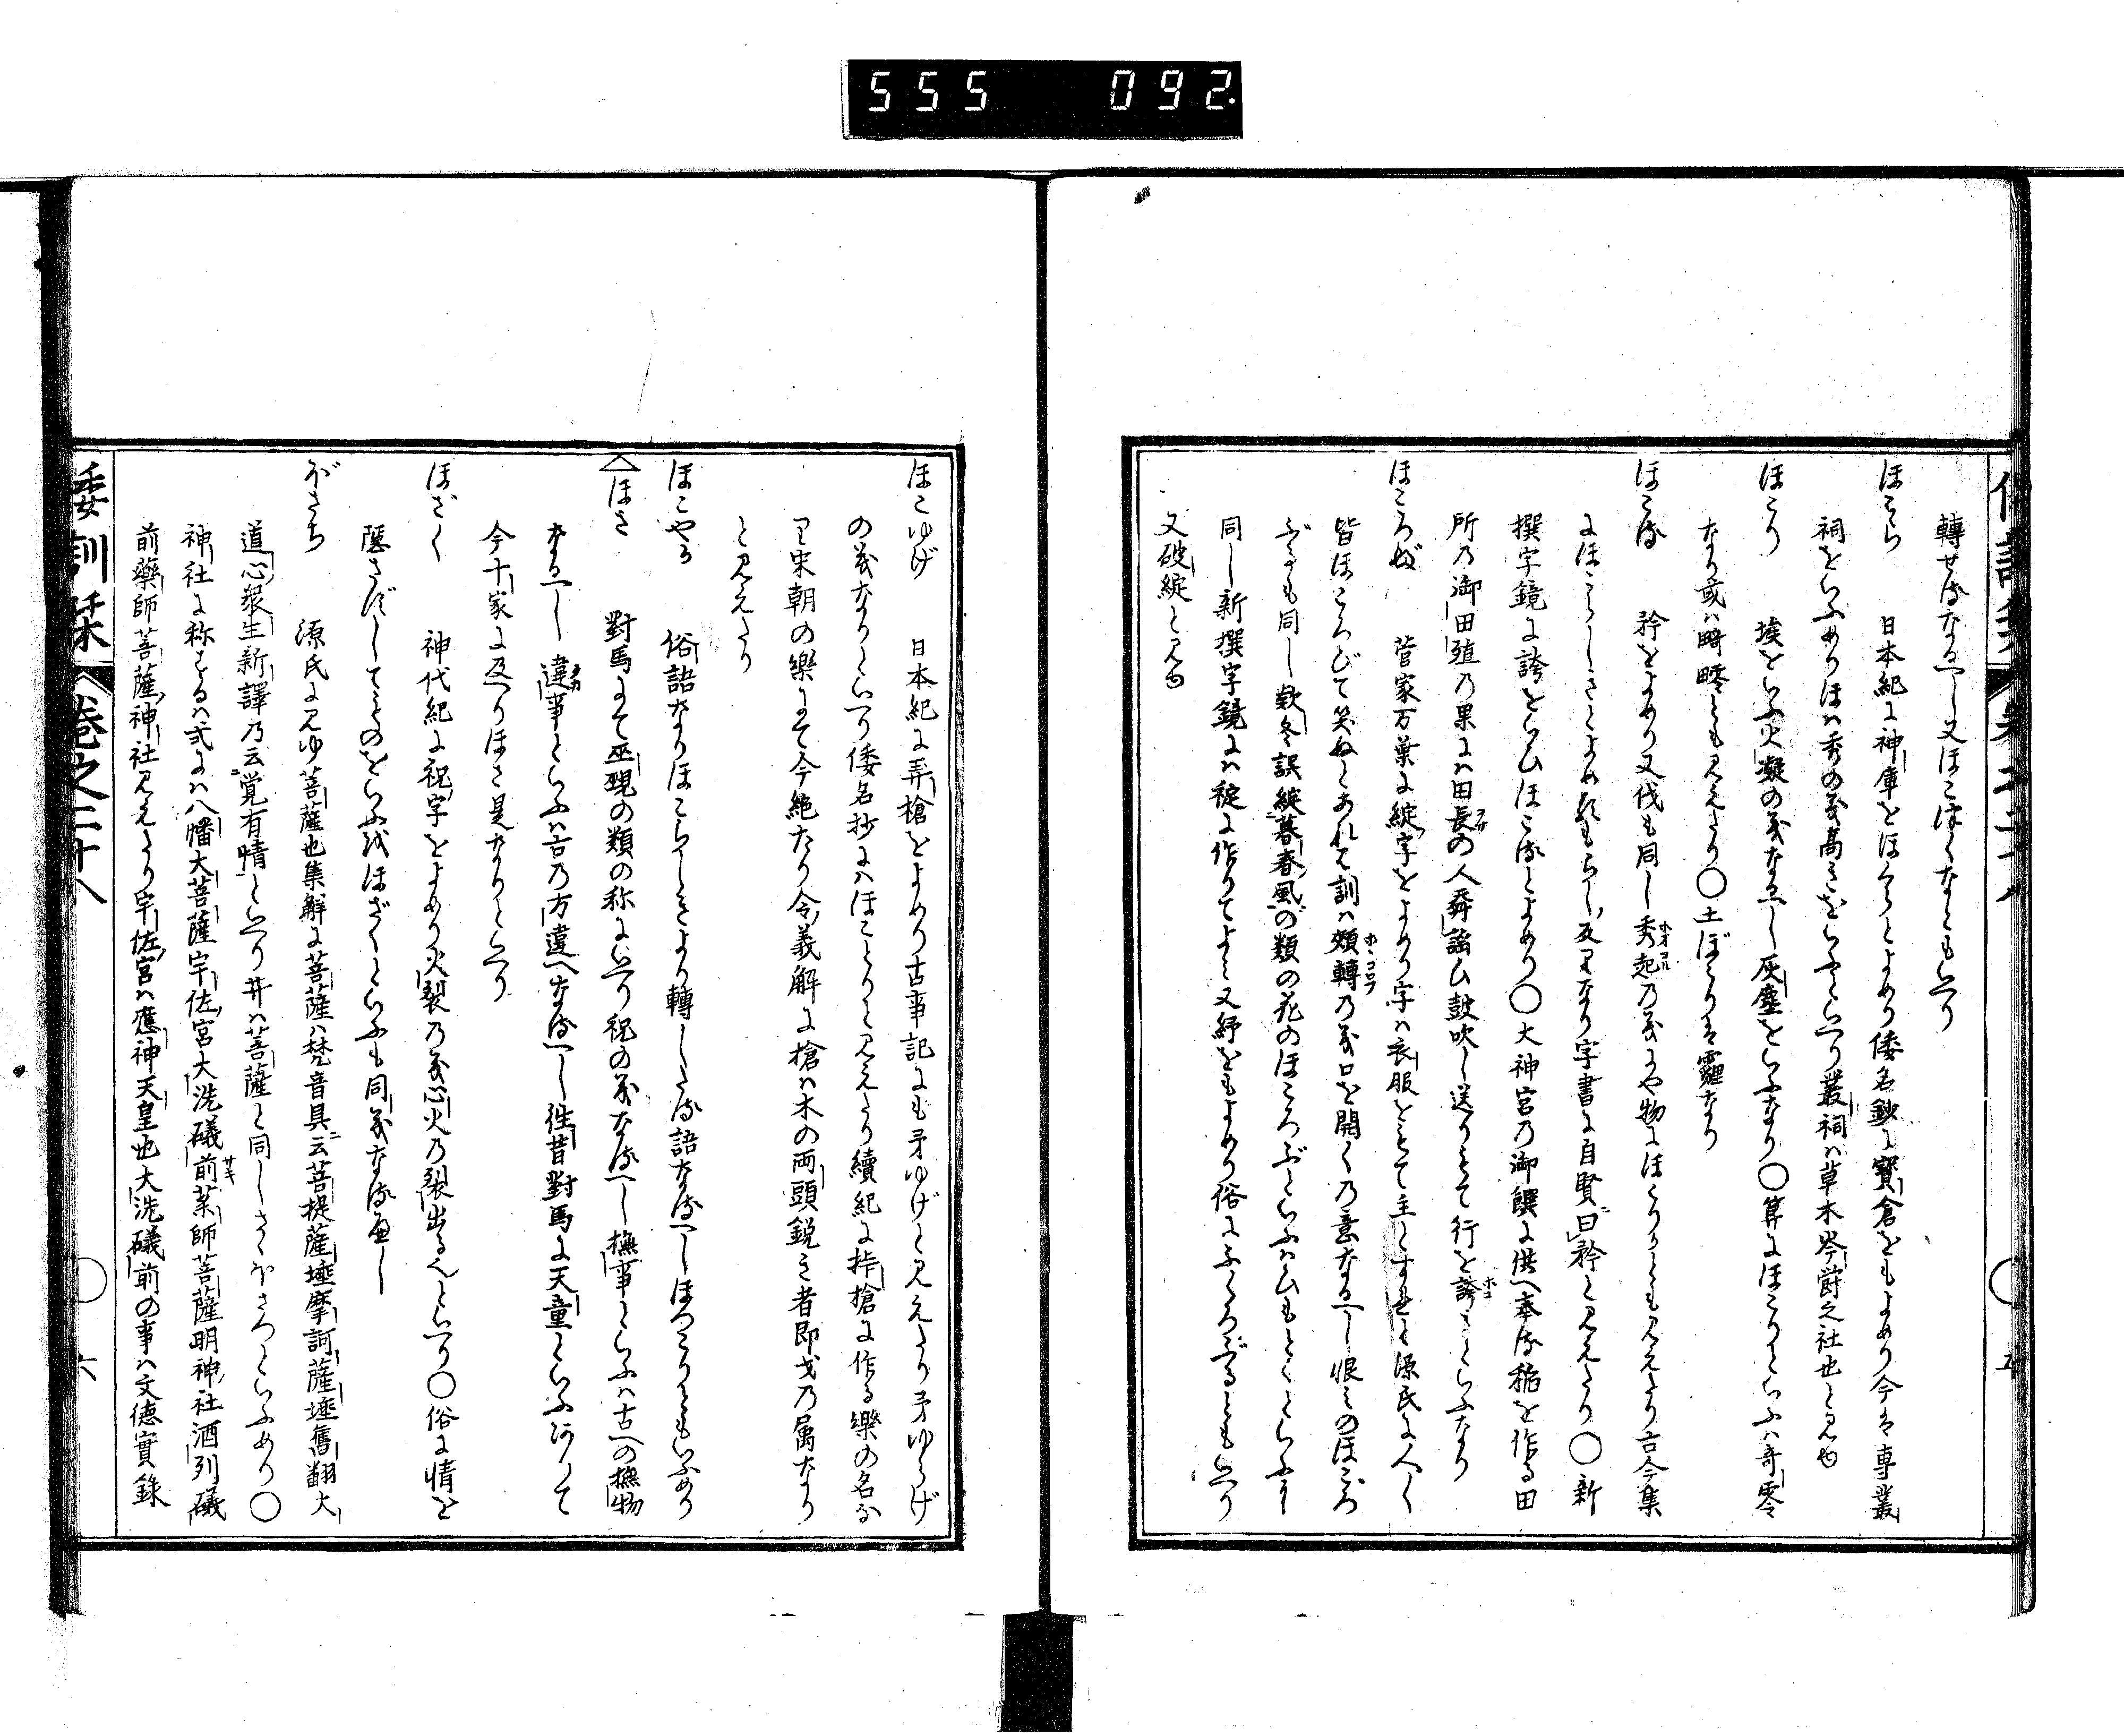 555 092.
轉せるなるへし又ほこほくなともいへり
ほこら 日本紀に神庫をほくらとよめり倭名鈔に寳倉をもよめり今は専叢
祠をいふめりほハ秀の義高きをいふといへり叢祠ハ草木岑蔚之社也と見ゆ
ほこり 埃をいふ火凝の義なるへし灰塵をいふなり〇算にほこりといふハ奇零
なり或ハ畸零とも見えたり〇土ぼこりは霾なり
ほこる 矜をよめり又伐も同し秀起乃義にや物にほこりかとも見えたり古今集
にほこらしきとよめるもらし反りなり字書に自賢曰矜と見えたり〇新
撰字鏡に誇をらひほこるとよめり〇大神宮乃御饌に供へ奉る稲を作る田
所乃御田殖乃果にハ田長の人舞謡ひ鼓吹し送りもて行を誇ことといふなり
ほころぶ 菅家万葉に綻字をよめり字ハ衣服をもて主とすれと源氏に人〳〵
皆ほころびて笑ぬとあれは訓ハ頬轉乃義口を開く乃意なるへし恨みのほころ
ぶるも同し欵冬誤綻暮春風の類の花のほころぶといふハひもとくといふに
同し新撰字鏡にハ䘺に作りてよみ又紓をもよめり俗にふくろぶるともいへり
又破綻と見ゆ
ほこゆげ 日本紀に弄槍をよめり古事記にも矛ゆげと見えたり矛ゆらげ
の義なりといへり倭名抄にハほことりと見えたり續紀に桙槍に作る樂の名な
り宋朝の樂にて今絶たり令義解に槍ハ木の両頭鋭き者即戈乃属なり
と見えたり
ほこやか 俗語なりほこらしきより轉したる語なるへしほつこりともいふめり
ほさ 對馬にて巫覡の類の称にいへり祝の義なるへし撫事といふハ古への撫物
なるへし違事といふハ古乃方違へなるへし徃昔對馬に天童といふ〳〵て
今十家に及へりほさ是なりといへり
ほざく 神代紀に祝字をよめり火裂乃義心火乃裂出るへといへり〇俗に情を
隠さずしてものをいふをほざくといふも同義なるへし
ぼさち 源氏に見ゆ菩薩也集解に菩薩ハ梵音具云菩提薩埵摩訶薩埵舊翻大
道心衆生新譯乃云覚有情といへり 𦬇ハ菩薩と同しさゝぼさつといふめり〇
神社に称せるハ式にハ八幡大菩薩宇佐宮大洗礒前薬師菩薩明神社酒列礒
前藥師菩薩神社見えたり宇佐宮ハ應神天皇也大洗礒前の事ハ文徳實録
倭訓栞 巻之二十八 六